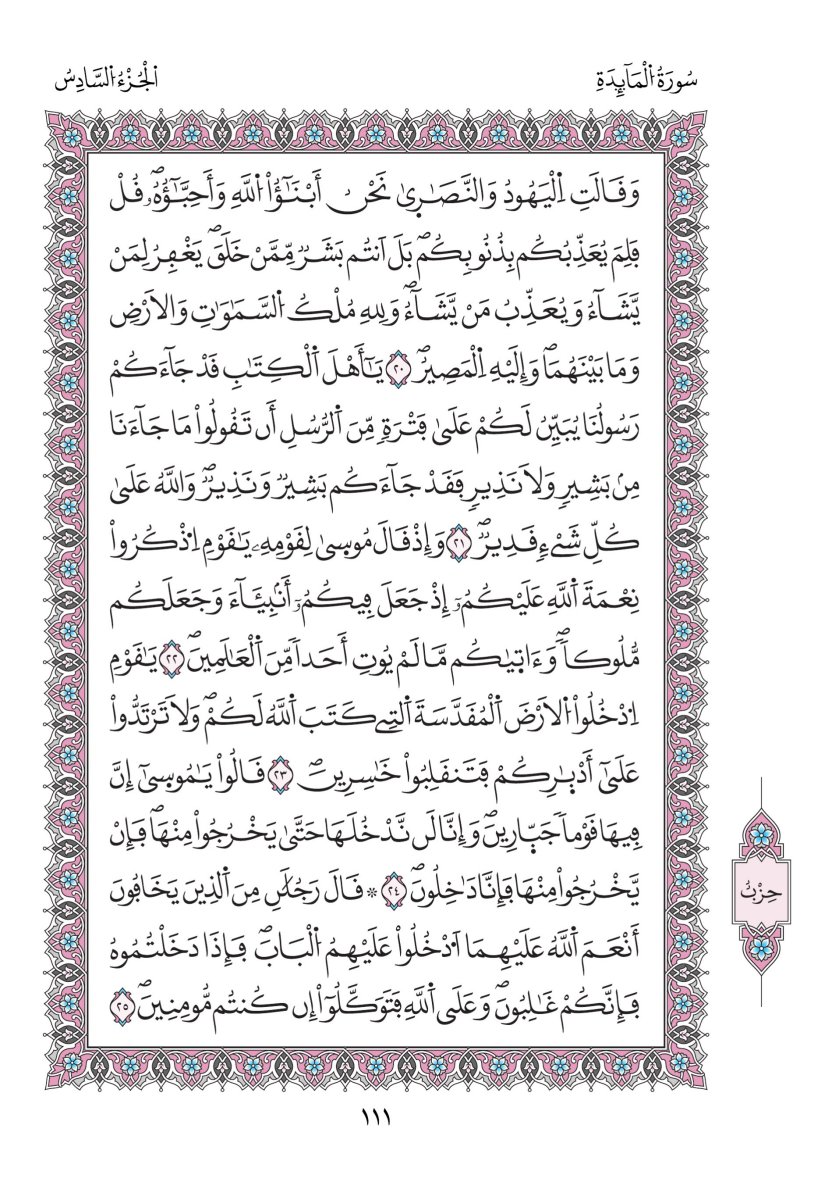 سُورَةُ اُ۬لْمَآئِدَةِ
اَ۬لْجُزْءُ اُ۬لسَّادِسُ
وَقَالَتِ اِ۬لْيَهُودُ وَالنَّصَٰرَىٰ نَحْنُ أَبْنَٰٓؤُاْ اُ۬للَّهِ وَأَحِبَّٰٓؤُهُۥۖ قُلْ
فَلِمَ يُعَذِّبُكُم بِذُنُوبِكُمۖ بَلَ اَنتُم بَشَرٞ مِّمَّنْ خَلَقَۖ يَغْفِرُ لِمَنْ
يَّشَآءُ وَيُعَذِّبُ مَنْ يَّشَآءُۖ وَلِلهِ مُلْكُ اُ۬لسَّمَٰوَٰتِ وَالَارْضِ
وَمَا بَيْنَهُمَاۖ وَإِلَيْهِ اِ۬لْمَصِيرُۖ ٢٠ يَٰٓأَهْلَ اَ۬لْكِتَٰبِ قَدْ جَآءَكُمْ
رَسُولُنَا يُبَيِّنُ لَكُمْ عَلَىٰ فَتْرَةٖ مِّنَ اَ۬لرُّسُلِ أَن تَقُولُواْ مَا جَآءَنَا
مِنۢ بَشِيرٖ وَلَا نَذِيرٖ فَقَدْ جَآءَكُم بَشِيرٞ وَنَذِيرٞۖ وَاللَّهُ عَلَىٰ
كُلِّ شَےْءٖ قَدِيرٞۖ ٢١ وَإِذْ قَالَ مُوسِىٰ لِقَوْمِهِۦ يَٰقَوْمِ اِ۟ذْكُرُواْ
نِعْمَةَ اَ۬للَّهِ عَلَيْكُمُۥٓ إِذْ جَعَلَ فِيكُمُۥٓ أَنۢبِيَٰٓءَ وَجَعَلَكُم
مُّلُوكاٗۖ وَءَاتِيٰكُم مَّا لَمْ يُوتِ أَحَداٗ مِّنَ اَ۬لْعَٰلَمِينَۖ ٢٢ يَٰقَوْمِ
اِ۟دْخُلُواْ اُ۬لَارْضَ اَ۬لْمُقَدَّسَةَ اَ۬لتِے كَتَبَ اَ۬للَّهُ لَكُمْۖ وَلَا تَرْتَدُّواْ
عَلَىٰٓ أَدْبٰ۪رِكُمْ فَتَنقَلِبُواْ خَٰسِرِينَۖ ٢٣ قَالُواْ يَٰمُوسِىٰٓ إِنَّ
فِيهَا قَوْماٗ جَبّٰ۪رِينَۖ وَإِنَّا لَن نَّدْخُلَهَا حَتَّىٰ يَخْرُجُواْ مِنْهَاۖ فَإِنْ
يَّخْرُجُواْ مِنْهَا فَإِنَّا دَٰخِلُونَۖ ٢٤ ۞ قَالَ رَجُلَٰنِ مِنَ اَ۬لذِينَ يَخَافُونَ
أَنْعَمَ اَ۬للَّهُ عَلَيْهِمَا اَ۟دْخُلُواْ عَلَيْهِمُ اُ۬لْبَابَۖ فَإِذَا دَخَلْتُمُوهُ
فَإِنَّكُمْ غَٰلِبُونَۖ وَعَلَى اَ۬للَّهِ فَتَوَكَّلُوٓاْ إِن كُنتُم مُّومِنِينَۖ ٢٥
حِزْبٌ
١١١